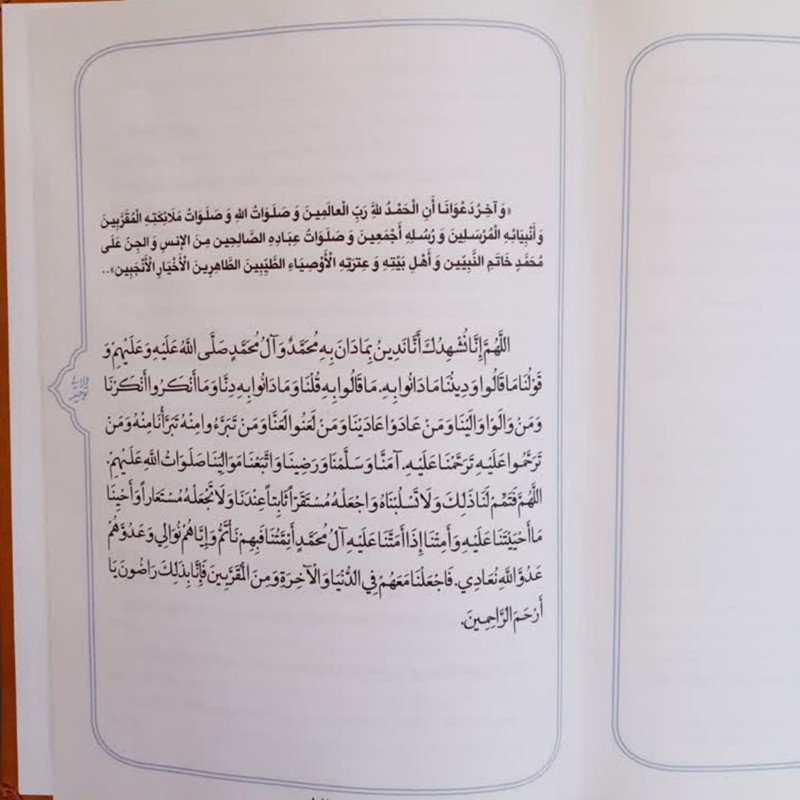 «وَ آخِرُ دَعْوَانَا أَنِ الْحَمْدُ لِلَّهِ رَبِّ الْعالَمِينَ وَ صَلَوَاتُ اللهِ وَ صَلَوَاتُ مَلَائِكَتِهِ الْمُقَرَّبِينَ
وَ أَنْبِيَائِهِ الْمُرْسَلِينَ وَ رُسُلِهِ أَجْمَعِينَ وَ صَلَوَاتُ عِبَادِهِ الصَّالِحِينَ مِنَ الْإِنْسِ وَ الْجِنِّ عَلَى
مُحَمَّدٍ خَاتَمِ النَّبِيِّينَ وَ أَهْلِ بَيْتِهِ وَ عِتْرَتِهِ الْأَوْصِيَاءِ الطَّيِّبِينَ الطَّاهِرِينَ الْأَخْيَارِ الْأَنْجَبِينَ»..
اللَّهُمَّ إِنَّا نُشْهِدُكَ أَنَّا نَدِينُ بِمَا دَانَ بِهِ مُحَمَّدٌ وَ آلُ مُحَمَّدٍ صَلَّى اللَّهُ عَلَيْهِ وَ عَلَيْهِمْ وَ
قَوْلُنَا مَا قَالُوا وَ دِينُنَا مَا دَانُوا بِهِ. مَا قَالُوا بِهِ قُلْنَا وَ مَا دَانُوا بِهِ دِنَّا وَ مَا أَنْكَرُوا أَنْكَرْنَا
وَ مَنْ وَالَوْا وَالَيْنَا وَ مَنْ عَادَوْا عَادَيْنَا وَ مَنْ لَعَنُوا لَعَنَّا وَ مَنْ تَبَرَّءُوا مِنْهُ تَبَرَّأْنَا مِنْهُ وَ مَنْ
تَرَحَّمُوا عَلَيْهِ تَرَحَّمْنَا عَلَيْهِ. آمَنَّا وَ سَلَّمْنَا وَ رَضِينَا وَ اتَّبَعْنَا مَوَالِيَنَا صَلَوَاتُ اللَّهِ عَلَيْهِمْ.
اللَّهُمَّ فَتَمِّمْ لَنَا ذَلِكَ وَ لَا تَسْلُبْنَاهُ وَ اجْعَلْهُ مُسْتَقَرّاً ثَابِتاً عِنْدَنَا وَ لَا تَجْعَلْهُ مُسْتَعَاراً وَ أَحْيِنَا
مَا أَحْيَيْتَنَا عَلَيْهِ وَ أَمِتْنَا إِذَا أَمَتَّنَا عَلَيْهِ آلُ مُحَمَّدٍ أَئِمَّتُنَا فَبِهِمْ نَأْتَمُّ وَ إِيَّاهُمْ نُوَالِي وَ عَدُوَّهُمْ
عَدُوَّ اللَّهِ نُعَادِي. فَاجْعَلْنَا مَعَهُمْ فِي الدُّنْيَا وَ الْآخِرَةِ وَ مِنَ الْمُقَرَّبِينَ فَإِنَّا بِذَلِكَ رَاضُونَ يَا
أَرْحَمَ الرَّاحِمِينَ.